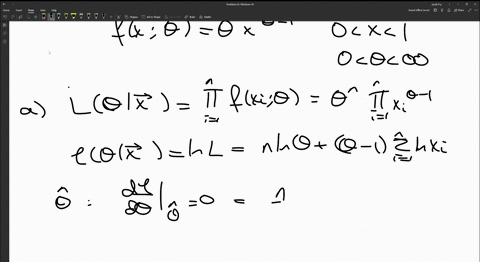 f(x; θ) = θ x^{θ-1}    0 < x < 1
0 < θ < ∞
a) L(θ|x⃗) = ∏_{i=1}^{n} f(xi; θ) = θ^n ∏_{i=1}^{n} xi^{θ-1}
ℓ(θ|x⃗) = ln L = n ln θ + (θ-1) ∑_{i=1}^{n} ln xi
θ̂ : dℓ/dθ |_{θ̂} = 0 = 1